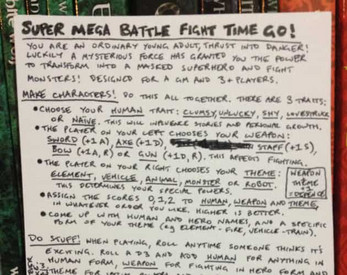 SUPER MEGA BATTLE FIGHT TIME GO!
YOU ARE AN ORDINARY YOUNG ADULT, THRUST INTO DANGER!
LUCKILY A MYSTERIOUS FORCE HAS GRANTED YOU THE POWER
TO TRANSFORM INTO A MASKED SUPERHERO AND FIGHT
MONSTERS! DESIGNED FOR A GM AND 3+ PLAYERS.
MAKE CHARACTERS! DO THIS ALL TOGETHER. THERE ARE 3 TRAITS;
• CHOOSE YOUR HUMAN TRAIT: CLUMSY, UNLUCKY, SHY, LOVESTRUCK
OR NAIVE. THIS WILL INFLUENCE STORIES AND PERSONAL GROWTH.
• THE PLAYER ON YOUR LEFT CHOOSES YOUR WEAPON:
SWORD (+1A) AXE (+1D) STAFF (+1S)
BOW (+1A,R) OR GUN (+1D,R). THIS AFFECTS FIGHTING.
• THE PLAYER ON YOUR RIGHT CHOOSES YOUR THEME:
ELEMENT, VEHICLE, ANIMAL, MONSTER OR ROBOT.
THIS DETERMINES YOUR SPECIAL POWERS.
WEAPON
+
THEME
=
DEFENCE
• ASSIGN THE SCORES 0,1,2 TO HUMAN, WEAPON AND THEME,
IN WHATEVER ORDER YOU LIKE. HIGHER IS BETTER.
• COME UP WITH HUMAN AND HERO NAMES, AND A SPECIFIC
FORM OF YOUR THEME (eg ELEMENT - FIRE, VEHICLE - TRAIN).
DO STUFF! WHEN PLAYING, ROLL ANYTIME SOMEONE THINKS IT'S
EXCITING. ROLL A D3 AND ADD HUMAN FOR ANYTHING IN
HUMAN FORM, WEAPON FOR FIGHTING IN HERO FORM AND
THEME FOR